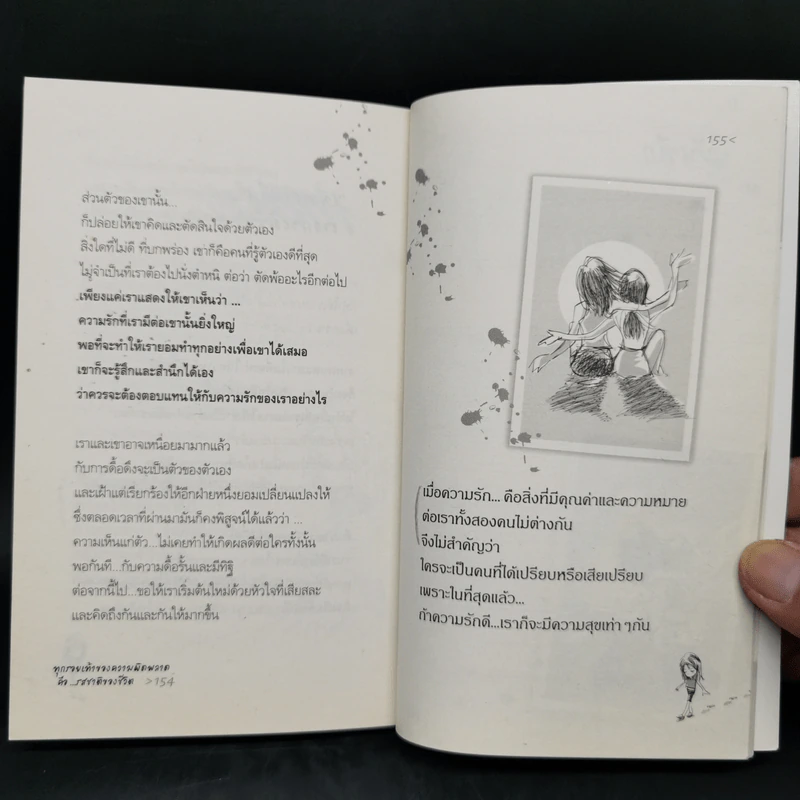 ส่วนตัวของเขานั้น...
ก็ปล่อยให้เขาคิดและตัดสินใจด้วยตัวเอง
สิ่งใดที่ไม่ดี ที่บกพร่อง เขาก็คือคนที่รู้ตัวเองดีที่สุด
ไม่จำเป็นที่เราต้องไปนั่งตำหนิ ต่อว่า ตัดพ้ออะไรอีกต่อไป
เพียงแค่เราแสดงให้เขาเห็นว่า ...
ความรักที่เรามีต่อเขานั้นยิ่งใหญ่
พอที่จะทำให้เรายอมทำทุกอย่างเพื่อเขาได้เสมอ
เขาก็จะรู้สึกและสำนึกได้เอง
ว่าควรจะต้องตอบแทนให้กับความรักของเราอย่างไร
เราและเขาอาจเหนื่อยมามากแล้ว
กับการดื้อดึงจะเป็นตัวของตัวเอง
และเฝ้าแต่เรียกร้องให้อีกฝ่ายหนึ่งยอมเปลี่ยนแปลงให้
ซึ่งตลอดเวลาที่ผ่านมามันก็คงพิสูจน์ได้แล้วว่า ...
ความเห็นแก่ตัว...ไม่เคยทำให้เกิดผลดีต่อใครทั้งนั้น
พอกันที...กับความดื้อรั้นและมีทิฐิ
ต่อจากนี้ไป...ขอให้เราเริ่มต้นใหม่ด้วยหัวใจที่เสียสละ
และคิดถึงกันและกันให้มากขึ้น
ทุกรอยเท้าของความผิดพลาด
คือ...รสชาติของชีวิต >154
155<
เมื่อความรัก... คือสิ่งที่มีคุณค่าและความหมาย
ต่อเราทั้งสองคนไม่ต่างกัน
จึงไม่สำคัญว่า
ใครจะเป็นคนที่ได้เปรียบหรือเสียเปรียบ
เพราะในที่สุดแล้ว...
ถ้าความรักดี...เราก็จะมีความสุขเท่า ๆกัน